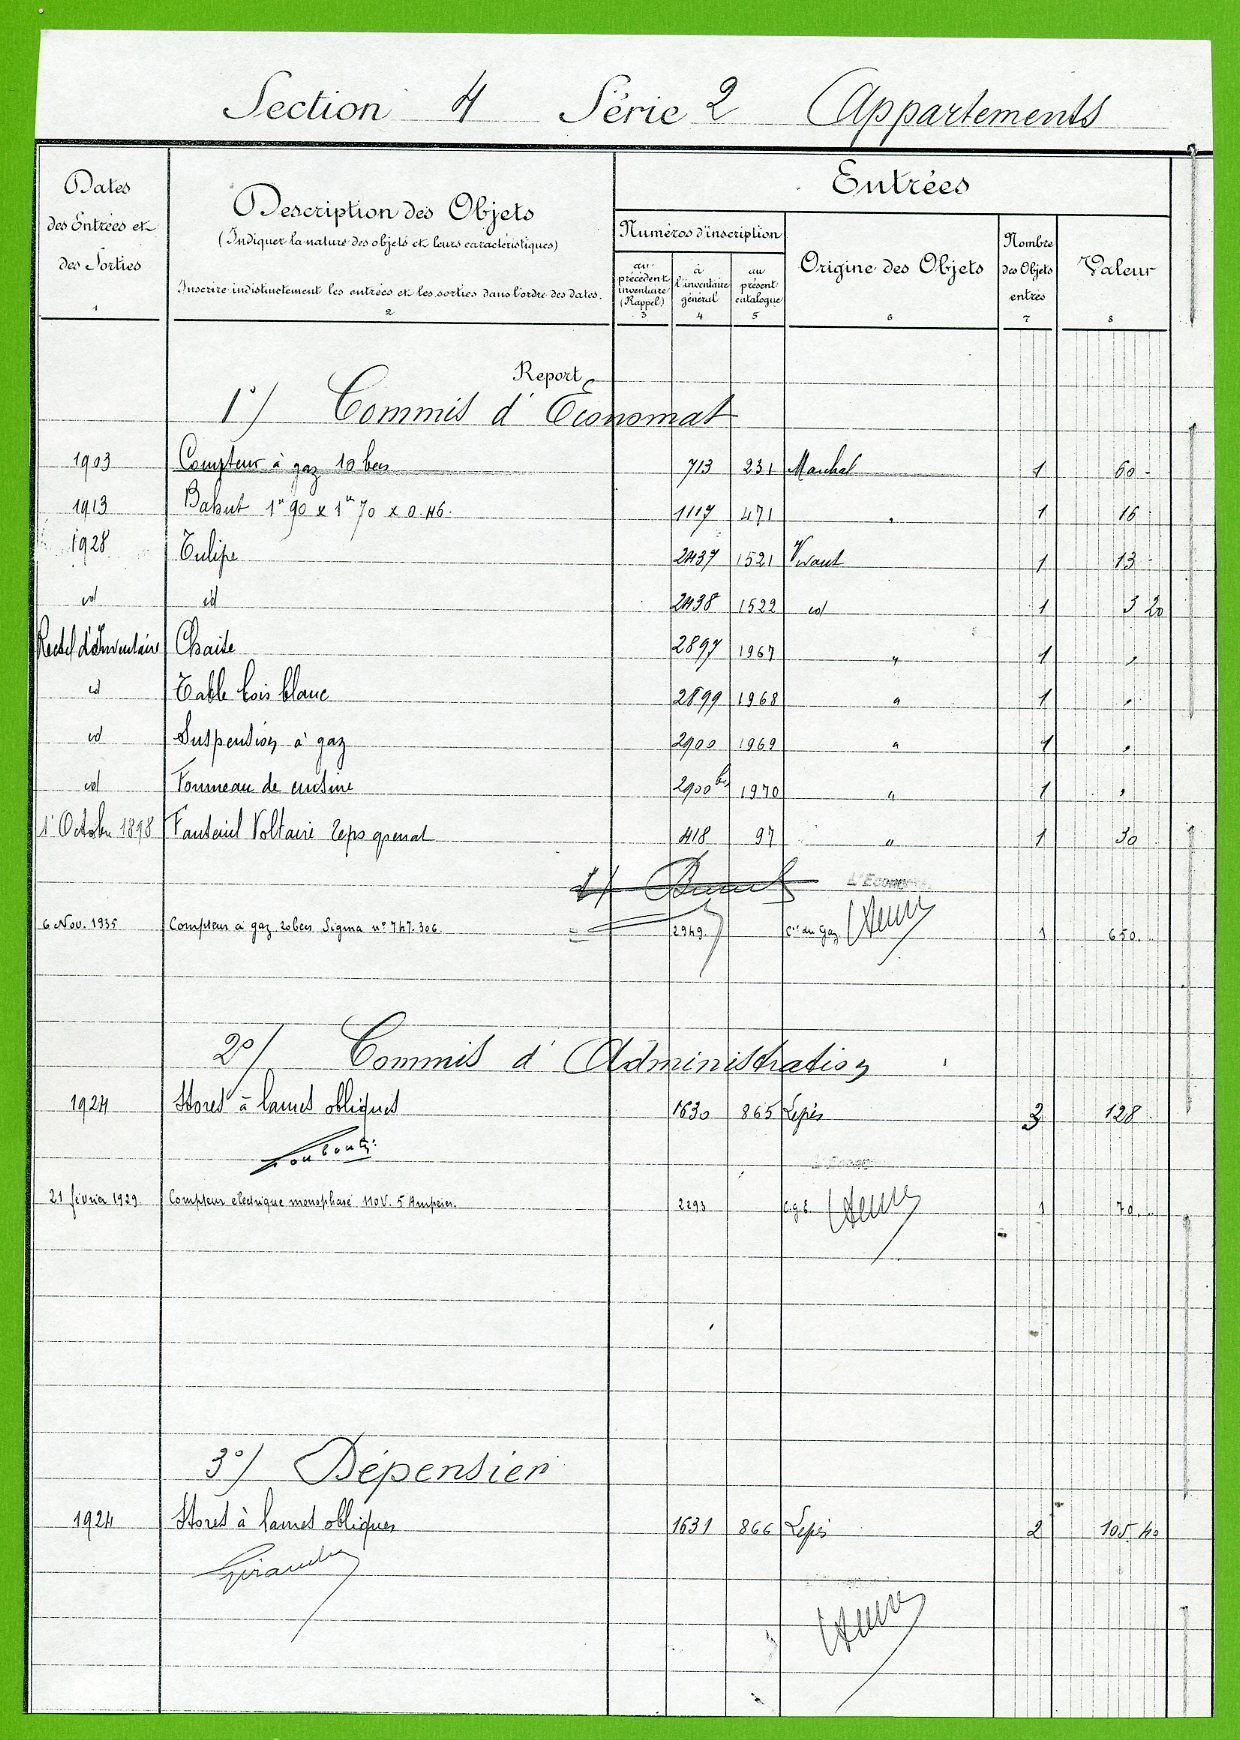 Section 4 Série 2 Appartements
Dates des Entrées et des Sorties
1
Description des Objets
(Indiquer la nature des objets et leurs caractéristiques)
Inscrire indistinctement les entrées et les sorties dans l'ordre des dates.
2
Entrées
Numéros d'inscription
au précédent inventaire (Rappel)
3
à l'inventaire général
4
au présent catalogue
5
Origine des Objets
6
Nombre des Objets entrés
7
Valeur
8
Report
1°/ Commis d'Économat
1903 Compteur à gaz 10 becs 713 231 Marchal 1 60 -
1913 Bahut 1m90 x 1m70 x 0.46. 1117 471 " 1 16
1928 Tulipe 2437 1521 1 13
id id 2438 1522 id 1 3 20
d'Inventaire Chaise 2897 1967 " 1 "
id Table bois blanc 2899 1968 " 1 "
id Suspension à gaz 2900 1969 " 1 "
id Fourneau de cuisine 2900 bis 1970 " 1 "
1er Octobre 1898 Fauteuil Voltaire reps grenat 418 97 " 1 30
L'Econome
6 Nov. 1935 Compteur à gaz 20 becs Sigma n° 747.306 2949. Cie du Gaz 1 650.
2°/ Commis d'Administration
1924 Stores à lames obliques 1630 865 Lepès 3 128
21 février 1929 Compteur électrique monophasé 110 V. 5 Ampères. 2293 C.g.E. 1 70.
3°/ Dépensier
1924 Stores à lames obliques 1631 866 Lepès 2 105 40